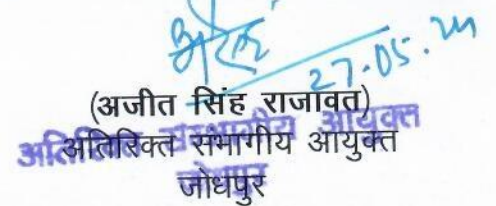 27-05.24
(अजीत सिंह राजावत)
अतिरिक्त संभागीय आयुक्त
अतिरिक्त संभागीय आयुक्त
जोधपुर
जोधपुर